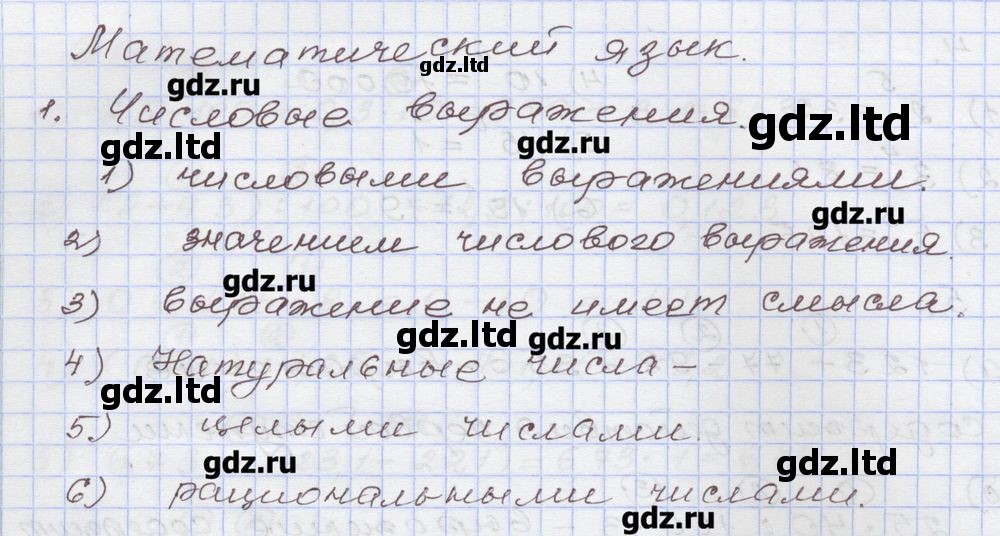 Математический язык.
gdz.ltd
gdz.ltd
1. Числовые выражения.
gdz.ltd
gdz.ltd
gdz.ltd
1) числовыми выражениями.
gdz.ltd
2) значением числового выражения.
gdz.ltd
3) выражение не имеет смысла.
gdz.ltd
4) Натуральные числа –
gdz.ltd
5) целыми числами.
gdz.ltd
gdz.ltd
6) рациональными числами.
gdz.ltd